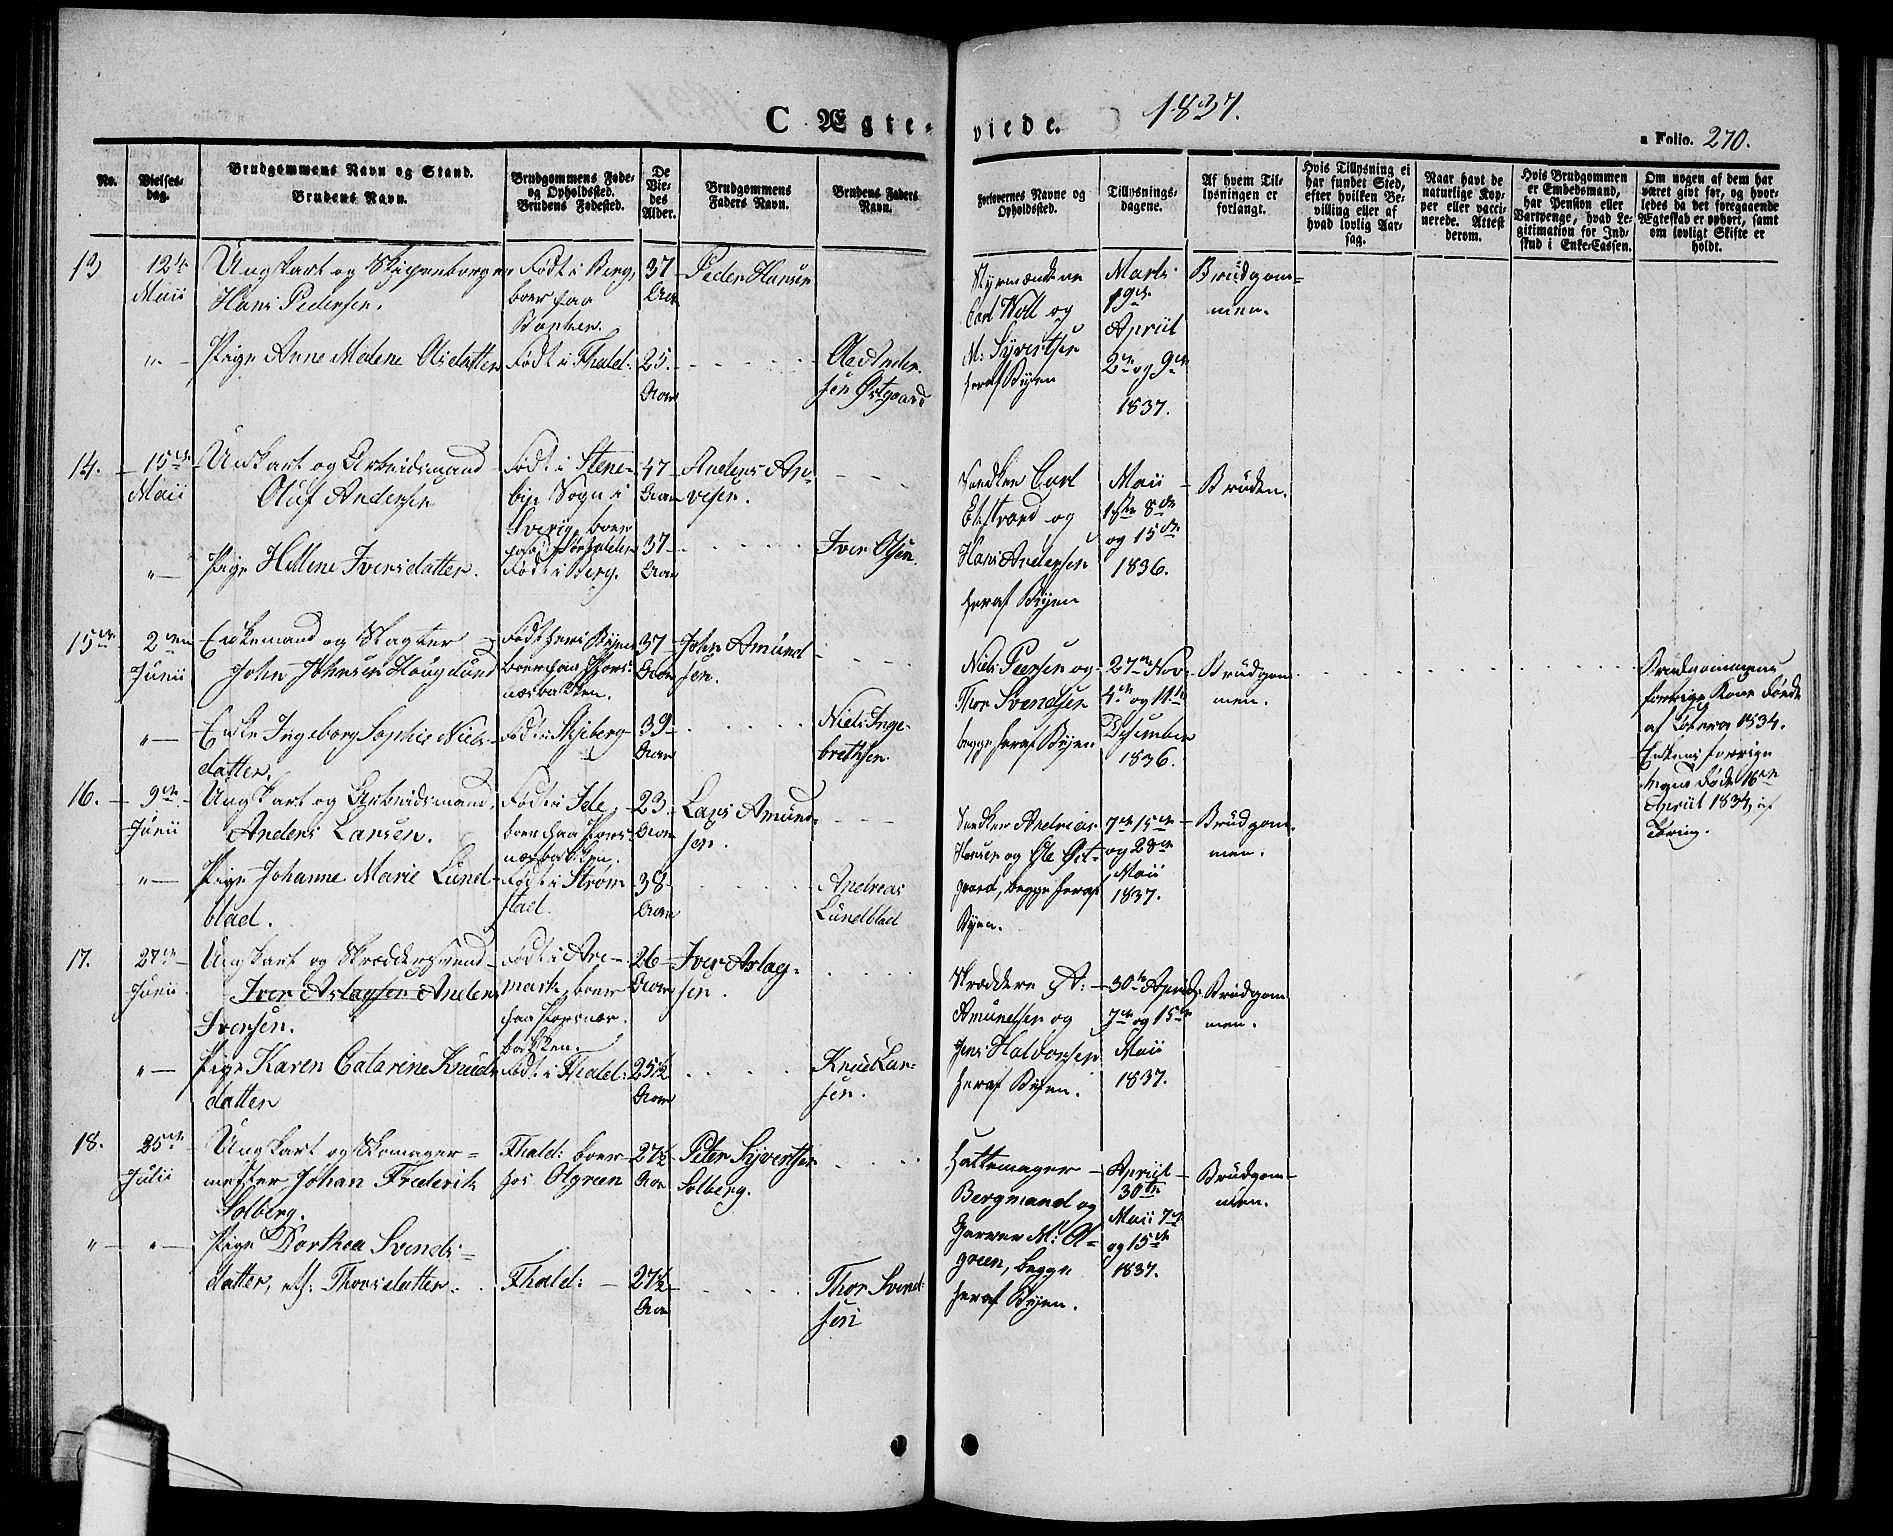 C Ægte-
viede.
1837.
a Folio. 270.
No.
Vielses-
dag.
Brudgommens Navn og Stand.
Brudens Navn.
Brudgommens Føde-
og Opholdssted.
Brudens Fødested.
De
Vie-
des
Alder.
Brudgommens
Faders Navn.
Brudens Faders
Navn.
Forlovernes Navne og
Opholdssted.
Tillysnings-
dagene.
Af hvem Til-
lysningen er
forlangt.
Hvis Tillysning ei
har fundet Sted,
efter hvilken Be-
villing eller af
hvad lovlig Aar-
sag.
Naar havt de
naturlige Kop-
per eller vacci-
nerede. Attest
derom.
Hvis Brudgommen
er Embedsmand,
har Pension eller
Vartpenge, hvad Le-
gitimation for Ind-
skud i Enke-Cassen.
Om nogen af dem har
været givt før, og hvor-
ledes da det foregaaende
Ægteskab er ophørt, samt
om lovligt Skifte er
holdt.
13
12te
Maii
Ungkarl og
Hans Pedersen.
Født i Berg,
boer paa
37
Aar
Peder Hansen
Styrmændene
Carl Woll og
M: Syvertsen
heraf Byen
Marts
19de
Apriil
2den og 9de
1837.
Brudgom-
men.
" -
Pige Anne Malene Olsdatter
Født i Fhald:
25.
Aar
Ole Ander-
sen Østgaard
14.
15de
Maii
Ungkarl og Arbeidsmand
Oluf Andersen
Født i Stene-
bye Sogn i
Sverig, boer
47
Aar
Anders An-
Carl
Ekstrand og
Hans Andersen
heraf Byen
Maii
1ste 8de
og 15de
1836.
Bruden.
" -
Pige Hellene Iversdatter.
Født i Berg.
37
Aar
Iver Olsen.
15de
2den
Junii
Enkemand og Slagter
John Johnsen Hougslund
Født her i Byen
boer paa Thors-
næsbakken.
37
Aar
John Amund
sen.
Niels Peersen og
Thor Svendsen
begge heraf Byen
27de Nov-
4de og 11te
December
1836.
Brudgom-
men.
Brudgommens
forrige Kone døde
1834.
Enkens forrige
Mand døde 16de
Apriil 1834, af
Tæring.
" -
Enke Ingeborg Sophie Niels-
datter.
Født i Skjeberg
39
Aar
Niels Inge-
brethsen.
16.
9de
Junii
Ungkarl og Arbeidsmand
Anders Larsen.
Født i Ide,
boer paa Thors-
næsbakken.
23
Aar
Lars Amund-
sen.
Andreas
Hansen og Ole Øst-
gaard, begge heraf
Byen.
7de 15de
og 28de
Maii
1837.
Brudgom-
men.
" -
Pige Johanne Marie Lund-
blad.
Født i Strøm
stad.
38
Aar
Andreas
Lundblad
17.
27de
Junii
Ungkarl og Skræddersvend
Iver Aslagsen Anders
Svensen.
Født i Are-
mark, boer
paa Thorsnæs-
bakken.
26
Aar
Iver Aslag-
sen.
Skræddere A:
Amundsen og
Jens Haldorsen
heraf Byen.
30te Apriil
7de og 15de
Maii
1837.
Brudgom
men.
" -
Pige Karen Catarine Knuds
datter
Født i Fhald:
25½
Aar
Knud Lar-
sen.
18.
25de
Julii
Ungkarl og Skomager-
mester Johan Frederik
Solberg.
Fhald: boer
hos Olgreen
27½
Aar
Peter Syvertsen
Solberg.
Hattemager
Bergmand og
Garver M: Ol-
green, begge
heraf Byen.
Apriil
30te
Maii 7de
og 15de
1837.
Brudgom-
men.
" -
Pige Dorthea Svends-
datter, eft: Thorsdatter.
Fhald:
27½
Aar
Thor Svend-
sen